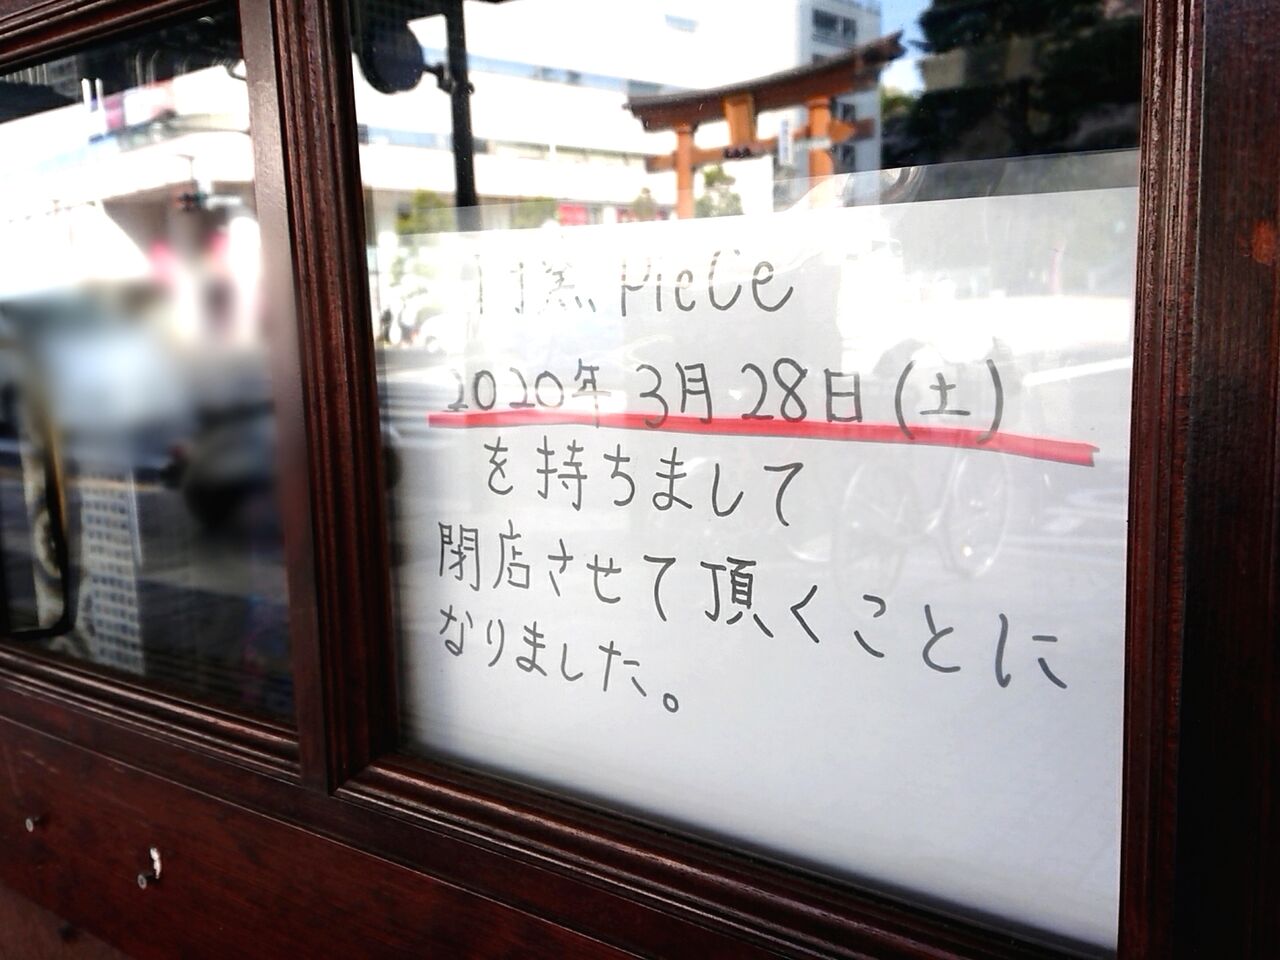 Piece
2020年 3月 28日(土)
を持ちまして
閉店させて頂くことに
なりました。